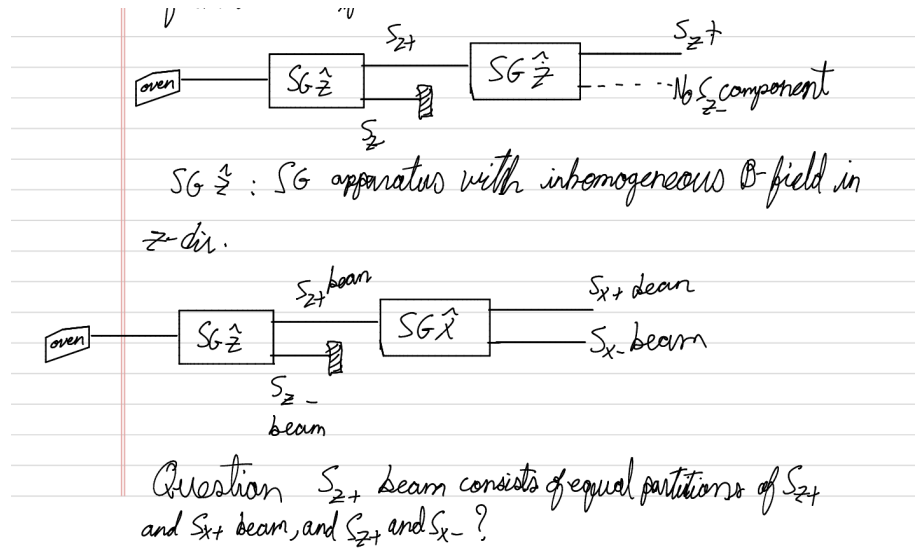 S_z+
S_z+
oven
SG ẑ
SG ẑ
No S_z- component
S_z
SG ẑ : SG apparatus with inhomogeneous B-field in
z-dir.
S_z+ beam
S_x+ beam
oven
SG ẑ
SG x̂
S_x- beam
S_z-
beam
Question S_z+ beam consists of equal partitions of S_z+
and S_x+ beam, and S_z+ and S_x- ?